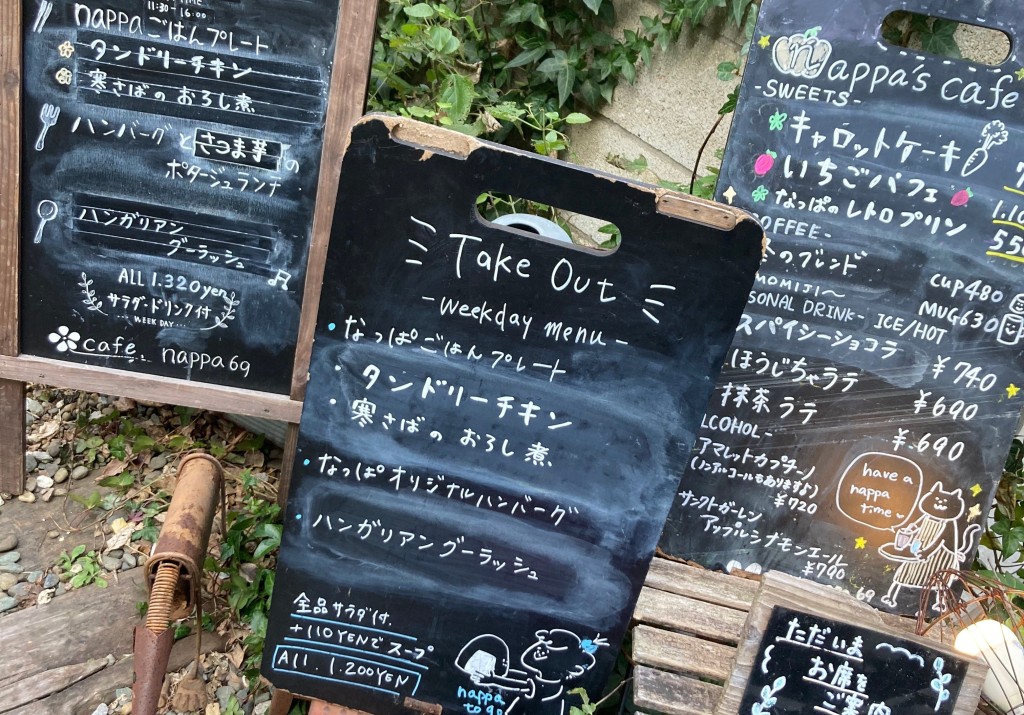 11:30-16:00
nappaごはんプレート
タンドリーチキン
寒さばの おろし煮
ハンバーグとさつま芋の
ポタージュランチ
ハンガリアン
グーラッシュ
ALL 1.320yen
サラダ・ドリンク付
WEEK DAY
cafe nappa69
Take Out
-weekday menu-
・なっぱごはんプレート
・タンドリーチキン
・寒さばの おろし煮
・なっぱオリジナルハンバーグ
・ハンガリアングーラッシュ
全品サラダ付
+110YENでスープ
All. 1.200YEN
nappa
to go
nappa's cafe
-SWEETS-
キャロットケーキ
いちごパフェ
なっぱのレトロプリン
550
COFFEE-
のブレンド
CUP480
MOMIJI~
MUG630
SONAL DRINK- ICE/HOT
スパイシーショコラ
¥740
ほうじちゃラテ
¥690
抹茶ラテ
¥690
LCOHOL-
アマレットカプチーノ
(ノンアルコールもありますよ)
¥720
サンクトガーレン
アップルシナモンエール
¥790
have a
nappa
time
69
ただいま
お席を
ご案内